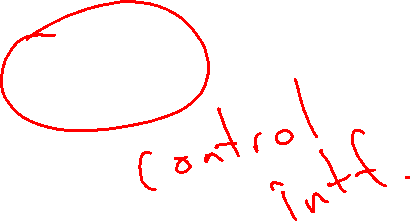 control
intf.